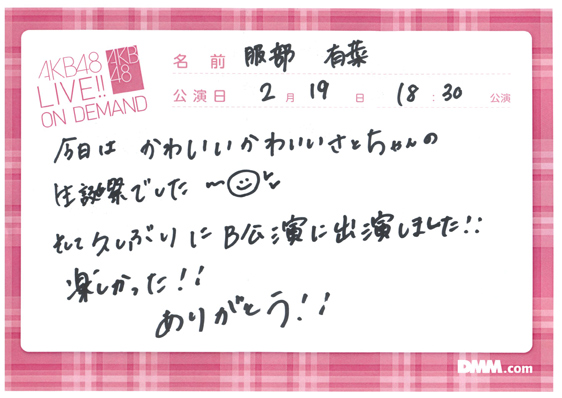 AKB48
LIVE!!
ON DEMAND
AKB
48
名前 服部 有菜
公演日 2月19日 18:30 公演
今日は かわいいかわいいさとちゃんの
生誕祭でした
そして久しぶりにB公演に出演しました!!
楽しかった!!
ありがとう!!
DMM.com